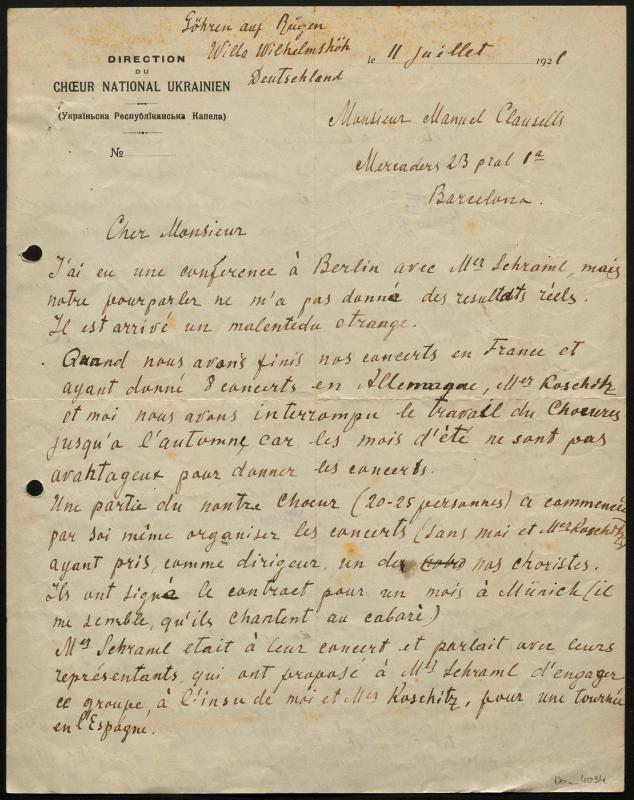 Göhren auf Rügen
Willa Wilhelmshöh
Deutschland
le 11 Juillet 1921
DIRECTION
DU
CHŒUR NATIONAL UKRAINIEN
(Україньска Республїканська Капела)
№
Monsieur Manuel Clausells
Mercaders 23 pral 1ª
Barcelona.
Cher Monsieur
J'ai eu une conference à Berlin avec Mer Schraml, mais
notre pourparler ne m'a pas donné des resultats réels.
Il est arrivé un malentedu etrange.
Quand nous avons finis nos concerts en France et
ayant donné 8 concerts en Allemagne, Mer Koschitz
et moi nous avons interrompu le travail du Choeures
jusqu'a l'automne, car les mois d'été ne sont pas
avantageux pour donner les concerts.
Une partie du nontre Choeur (20-25 personnes) a commencée
par soi même organiser les concerts (sans moi et Mer Koschitz)
ayant pris, comme dirigeur, un de nos choristes.
Ils ont signé le contract pour un mois à Münich (il
me semble, qu'ils chantent au cabarè)
Mer Schraml etait à leur concert et parlait avec leurs
représentants, qui ont proposé à Mer Schraml d'engager
ce groupe, à l'insu de moi et Mer Koschitz, pour une tournée
en l'Espagne.
Do_4034